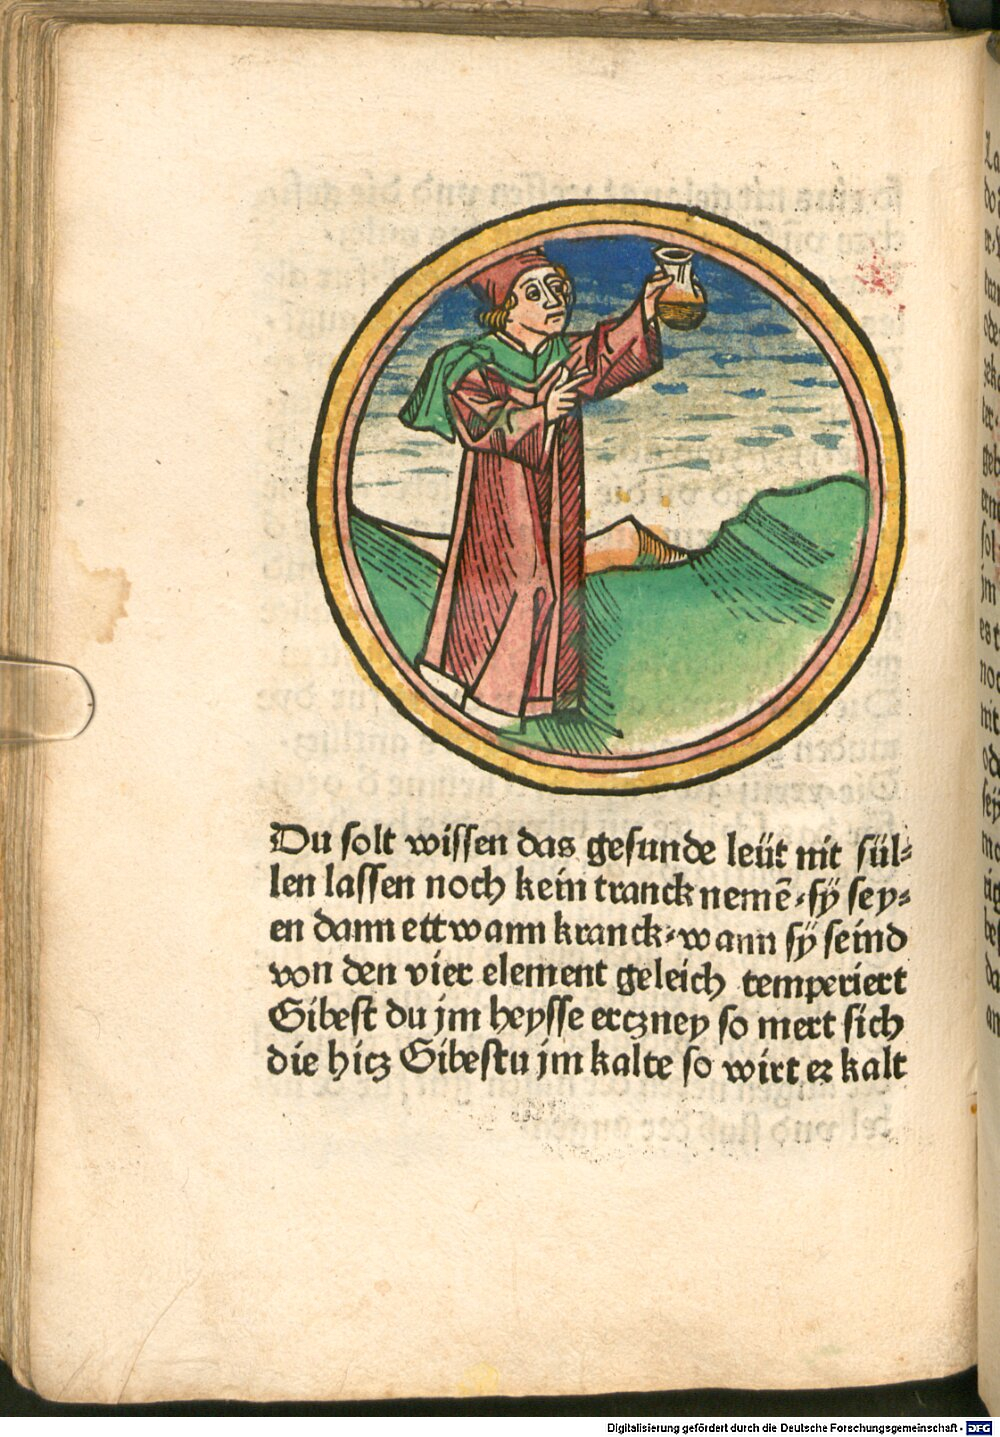 Du solt wissen das gesunde leüt nit sül⸗
len lassen noch kein tranck nemē⸗sÿ sey⸗
en dann ettwann kranck⸗wann sÿ seind
von den vier element geleich temperiert
Gibest du jm heysse erczney so mert sich
die hicz Gibestu jm kalte so wirt er kalt
Digitalisierung gefördert durch die Deutsche Forschungsgemeinschaft - DFG